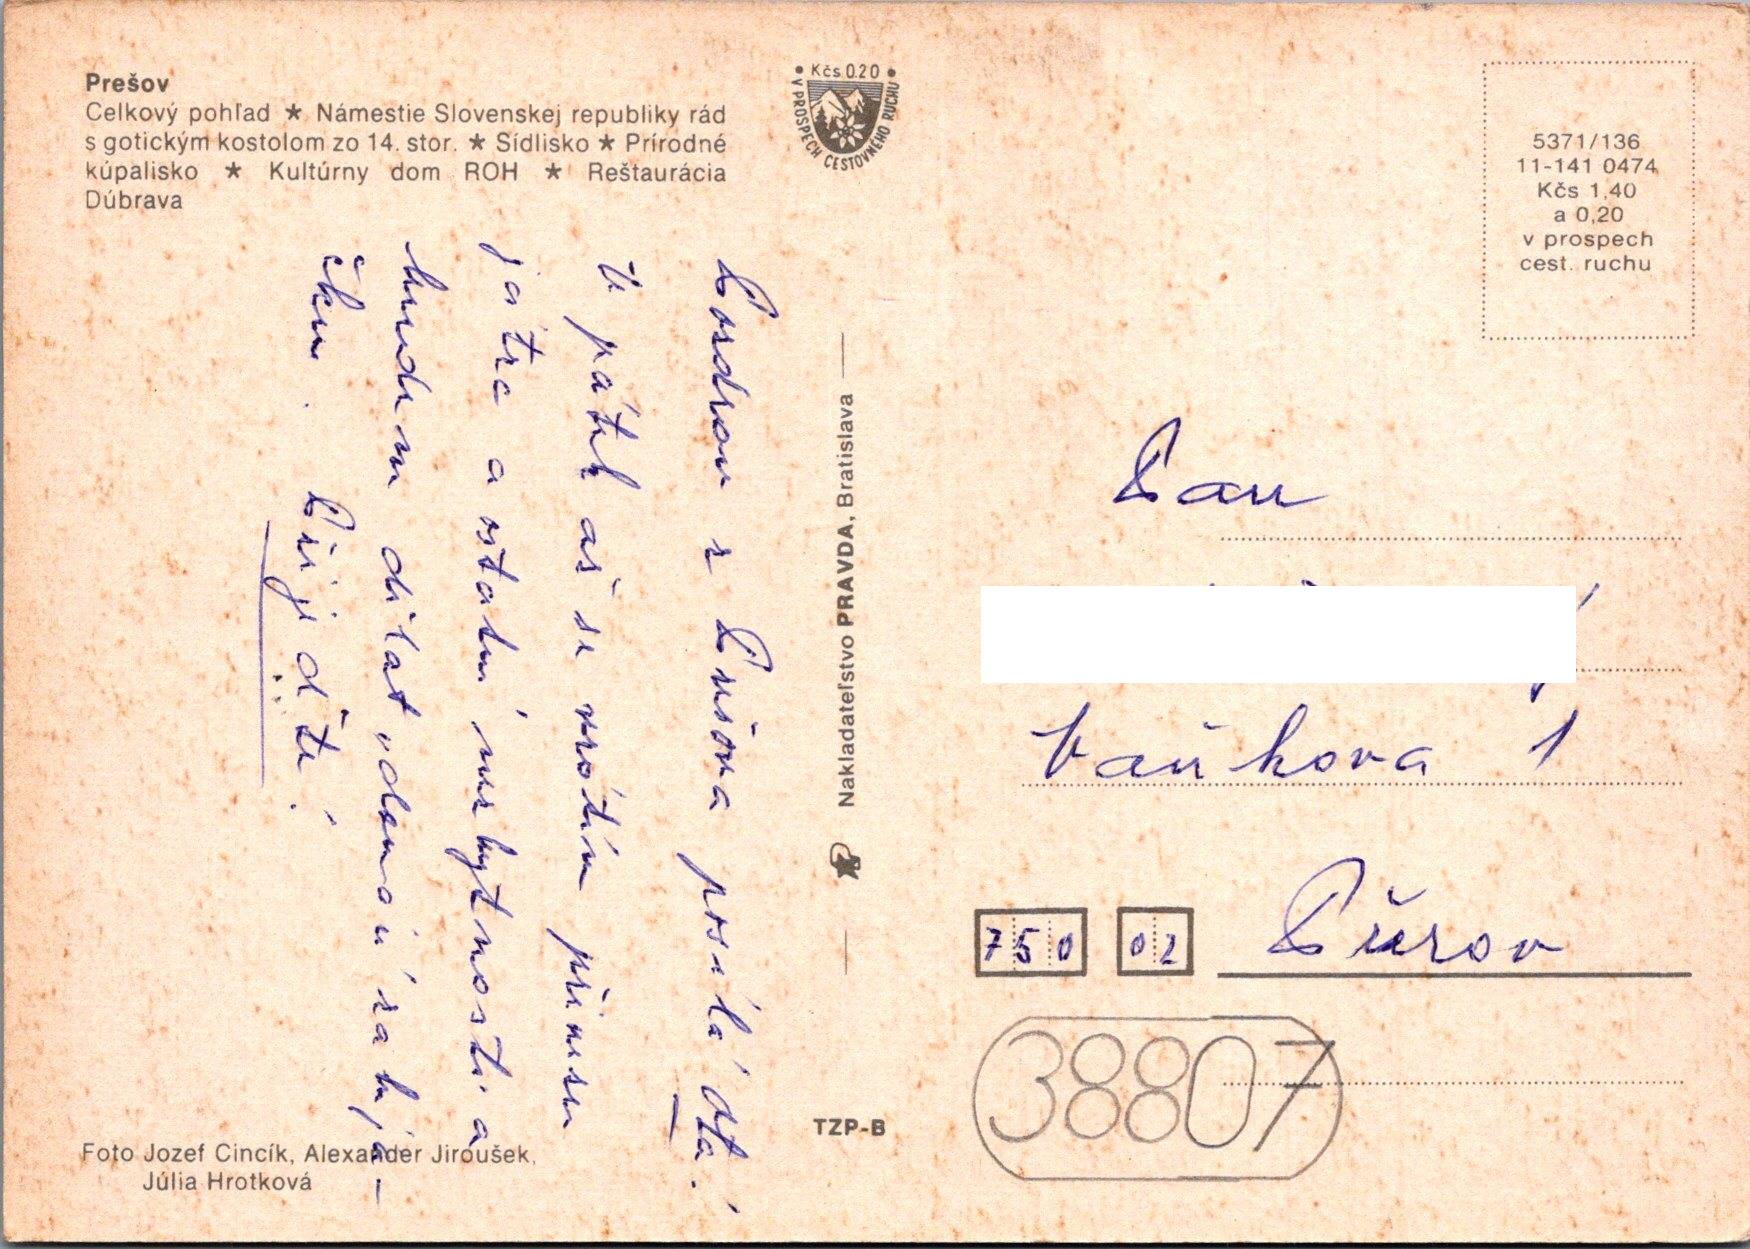 Prešov
Celkový pohľad ★ Námestie Slovenskej republiky rád
s gotickým kostolom zo 14. stor. ★ Sídlisko ★ Prírodné
kúpalisko ★ Kultúrny dom ROH ★ Reštaurácia
Dúbrava
• Kčs 0.20 •
V PROSPECH CESTOVNÉHO RUCHU
5371/136
11-141 0474
Kčs 1,40
a 0,20
v prospech
cest. ruchu
Pozdrav z Prešova posílá děda!
V pátek až se vrátím přinesu
játra a ostatní nezbytnosti a
budem dělat domácí zabíja-
čku. Přijďte!
Nakladateľstvo PRAVDA, Bratislava
TZP-B
Foto Jozef Cincík, Alexander Jiroušek,
Júlia Hrotková
Pan
Vaňkova 1
750 02 Přerov
38807